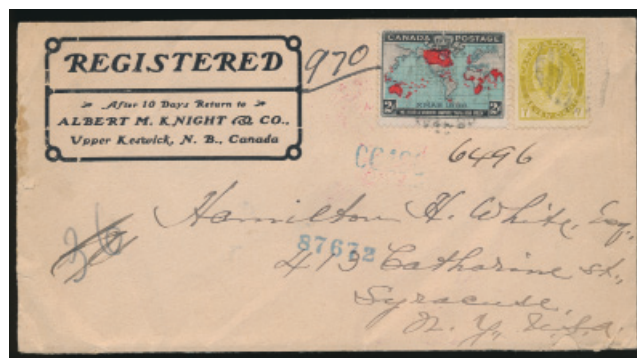 REGISTERED
After 10 Days Return to
ALBERT M. KNIGHT & CO.,
Upper Keswick, N. B., Canada
970
CANADA POSTAGE
XMAS 1898
2
2
6496
36
Hamilton H. White, Esq.,
87672
413 Catharine St.,
Syracuse,
N. Y., U.S.A.